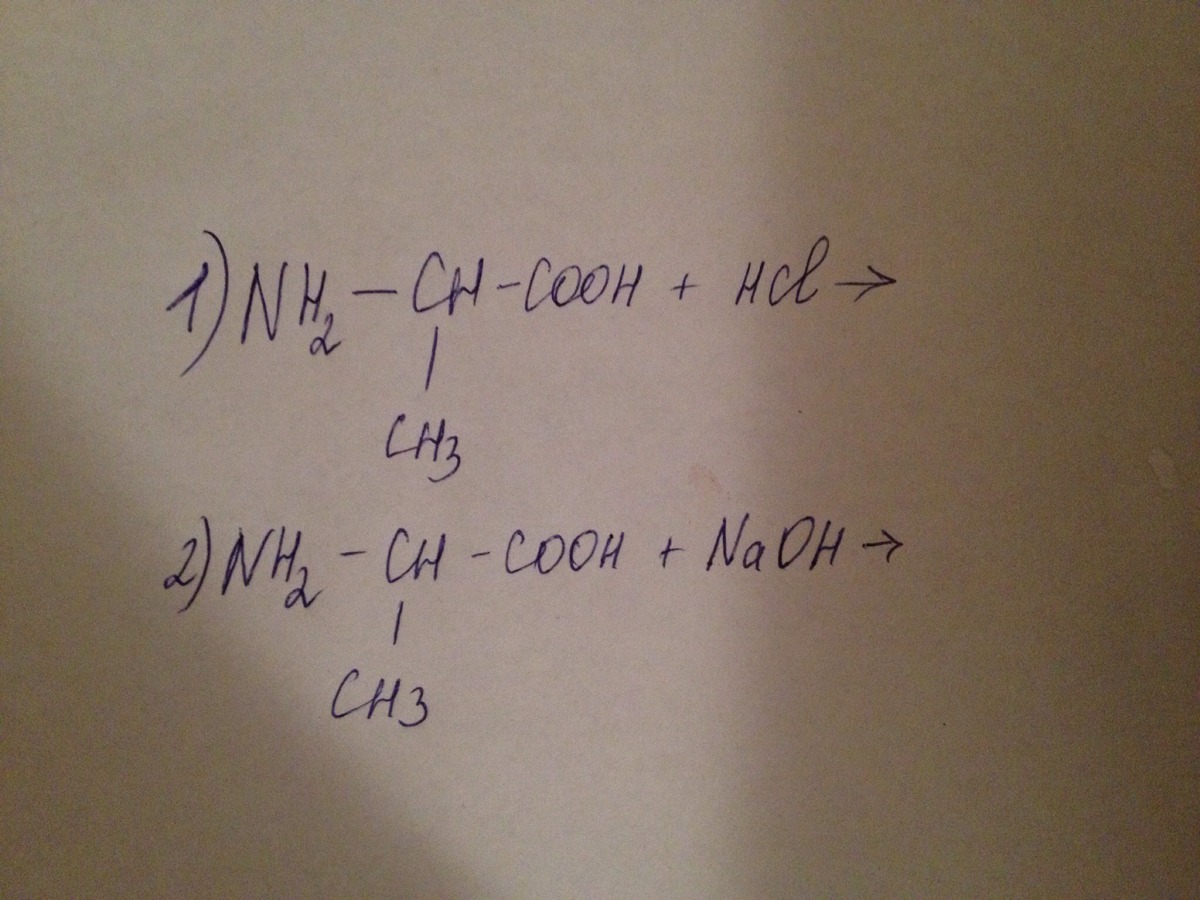 1) NH₂ – CH – COOH + HCl →
|
CH₃
2) NH₂ – CH – COOH + NaOH →
|
CH3